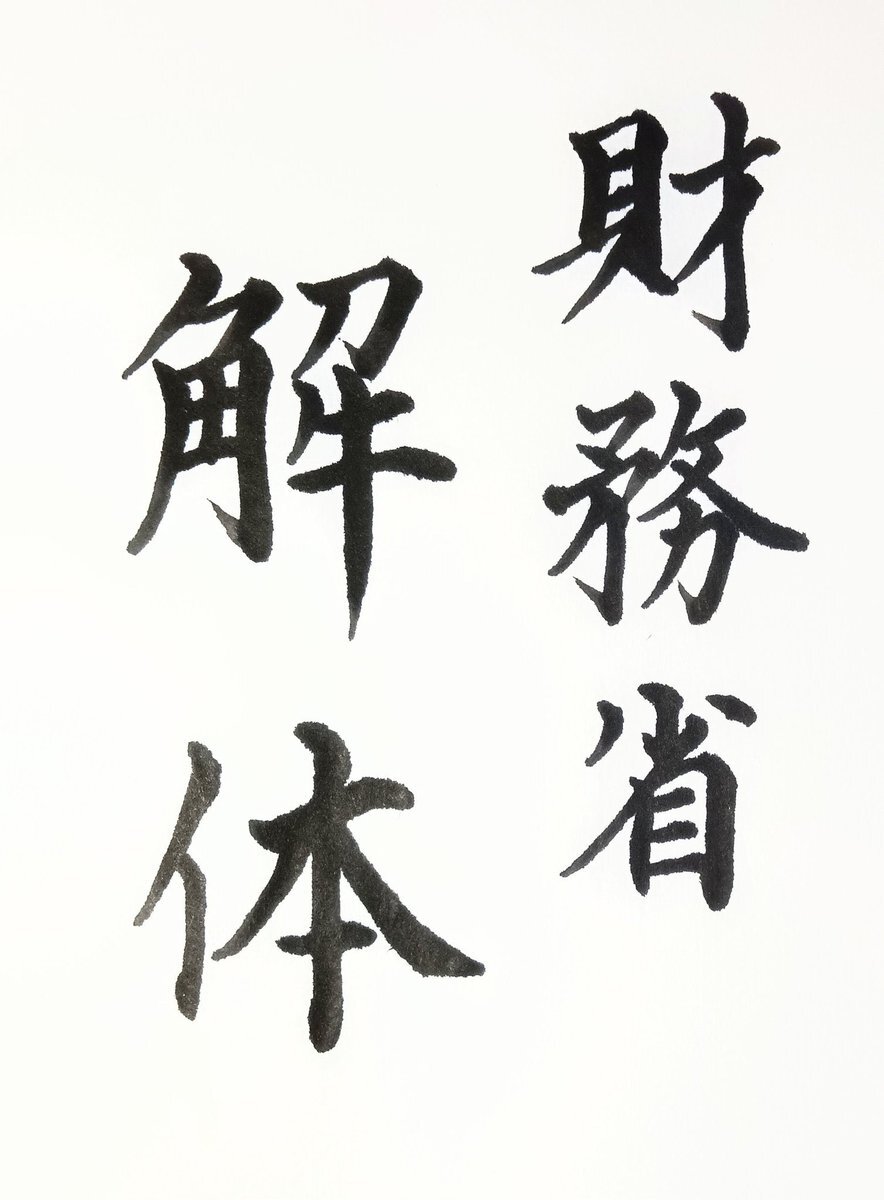 財務省
解体